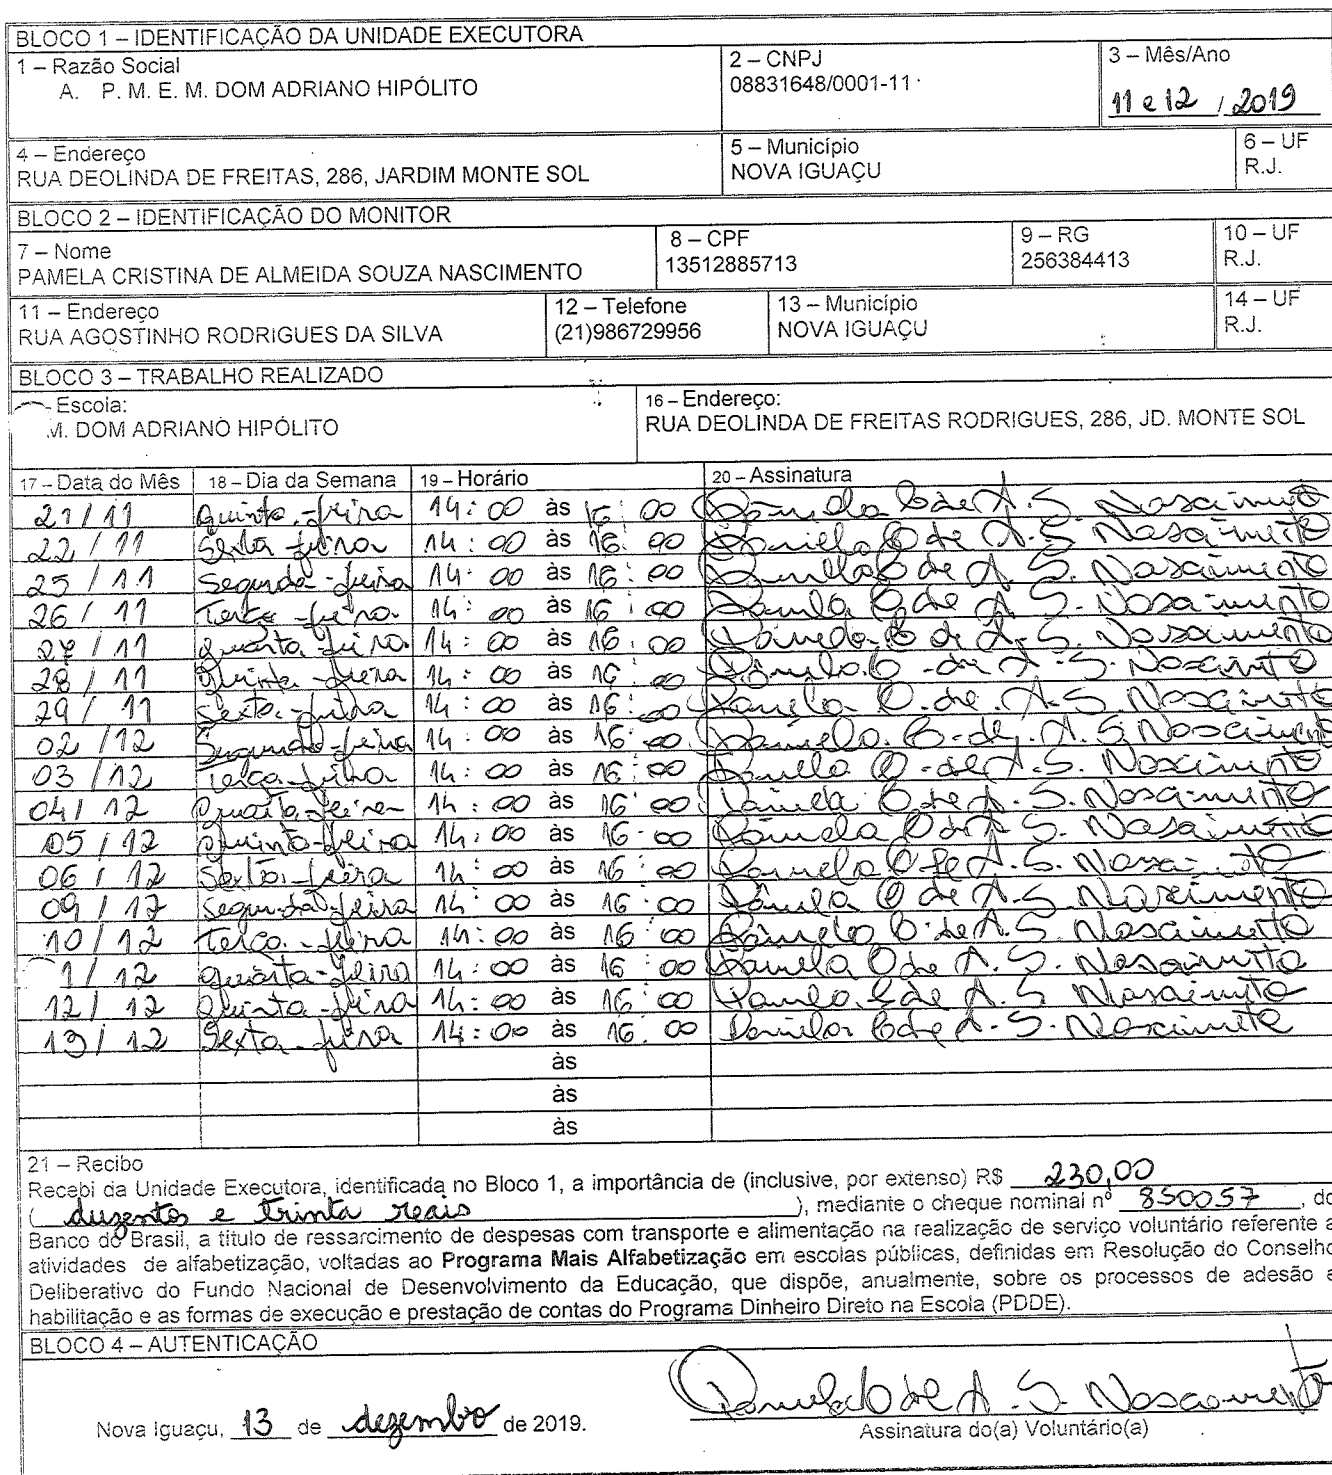 BLOCO 1 – IDENTIFICAÇÃO DA UNIDADE EXECUTORA
1 – Razão Social
A. P. M. E. M. DOM ADRIANO HIPÓLITO
2 – CNPJ
08831648/0001-11
3 – Mês/Ano
11 e 12 / 2019
4 – Endereço
RUA DEOLINDA DE FREITAS, 286, JARDIM MONTE SOL
5 – Município
NOVA IGUAÇU
6 – UF
R.J.
BLOCO 2 – IDENTIFICAÇÃO DO MONITOR
7 – Nome
PAMELA CRISTINA DE ALMEIDA SOUZA NASCIMENTO
8 – CPF
13512885713
9 – RG
256384413
10 – UF
R.J.
11 – Endereço
RUA AGOSTINHO RODRIGUES DA SILVA
12 – Telefone
(21)986729956
13 – Município
NOVA IGUAÇU
14 – UF
R.J.
BLOCO 3 – TRABALHO REALIZADO
- Escola:
M. DOM ADRIANO HIPÓLITO
16 – Endereço:
RUA DEOLINDA DE FREITAS RODRIGUES, 286, JD. MONTE SOL
17 – Data do Mês 18 – Dia da Semana 19 – Horário 20 – Assinatura
21/11 Quinta-feira 14:00 às 16:00 Pâmela C de A. S. Nascimento
22/11 Sexta-feira 14:00 às 16:00 Pamela C de A. S. Nascimento
25/11 Segunda-feira 14:00 às 16:00 Pamela C de A. S. Nascimento
26/11 Terça-feira 14:00 às 16:00 Pamela C de A. S. Nascimento
27/11 Quarta-feira 14:00 às 16:00 Pâmela C de A. S. Nascimento
28/11 Quinta-feira 14:00 às 16:00 Pâmela C de A. S. Nascimento
29/11 Sexta-feira 14:00 às 16:00 Pamela C. de A. S Nascimento
02/12 Segunda-feira 14:00 às 16:00 Pamela C. de A. S. Nascimento
03/12 Terça-feira 14:00 às 16:00 Pamela C. de A. S. Nascimento
04/12 Quarta-feira 14:00 às 16:00 Pamela C de A. S. Nascimento
05/12 Quinta-feira 14:00 às 16:00 Pâmela C de A. S. Nascimento
06/12 Sexta-feira 14:00 às 16:00 Pamela C de A. S. Nascimento
09/12 Segunda-feira 14:00 às 16:00 Pâmela C de A. S Nascimento
10/12 Terça-feira 14:00 às 16:00 Pâmela C de A. S. Nascimento
1/12 quarta-feira 14:00 às 16:00 Pamela C de A. S. Nascimento
12/12 Quinta-feira 14:00 às 16:00 Pamela C de A. S Nascimento
13/12 Sexta-feira 14:00 às 16:00 Pamela C de A. S. Nascimento
às
às
às
21 – Recibo
Recebi da Unidade Executora, identificada no Bloco 1, a importância de (inclusive, por extenso) R$ 230,00
( duzentos e trinta reais ), mediante o cheque nominal nº 850057, do
Banco do Brasil, a título de ressarcimento de despesas com transporte e alimentação na realização de serviço voluntário referente a
atividades de alfabetização, voltadas ao Programa Mais Alfabetização em escolas públicas, definidas em Resolução do Conselho
Deliberativo do Fundo Nacional de Desenvolvimento da Educação, que dispõe, anualmente, sobre os processos de adesão e
habilitação e as formas de execução e prestação de contas do Programa Dinheiro Direto na Escola (PDDE).
BLOCO 4 – AUTENTICAÇÃO
Pamela C de A. S. Nascimento
Nova Iguaçu, 13 de dezembro de 2019.
Assinatura do(a) Voluntário(a)